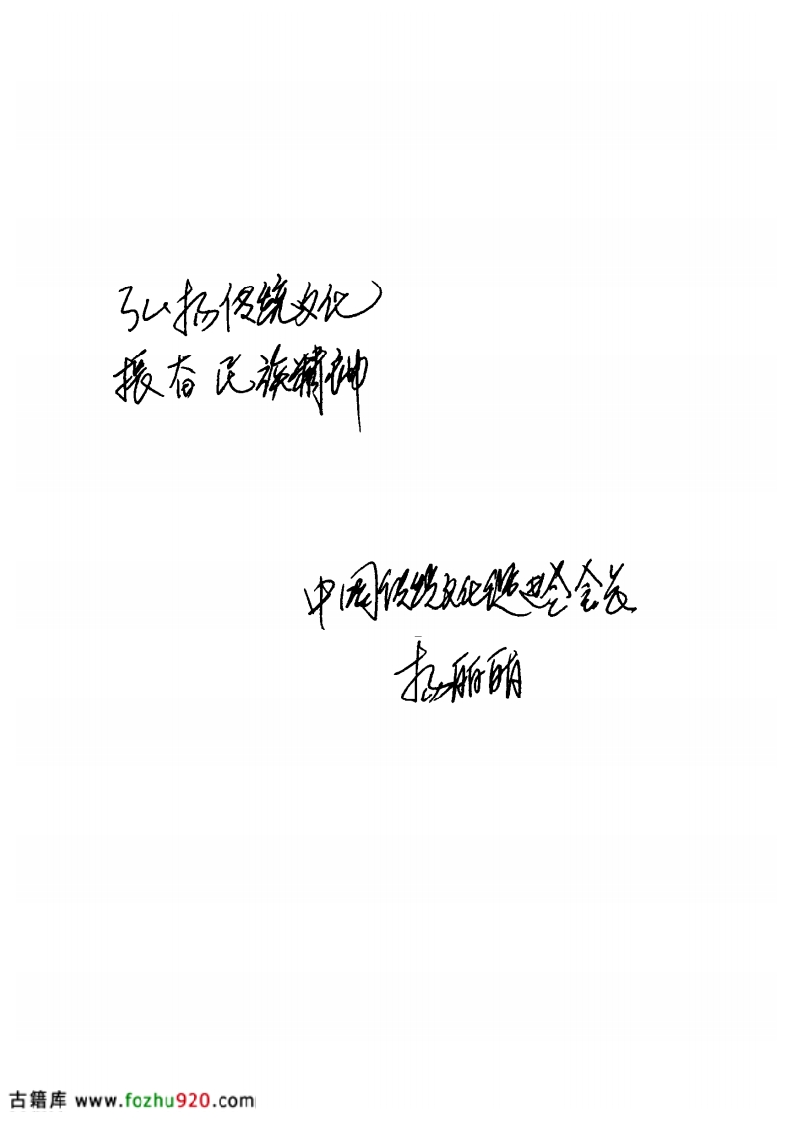 弘扬传统文化
振奋民族精神
中国传统文化促进会会长
杨
古籍库 www.fozhu920.com